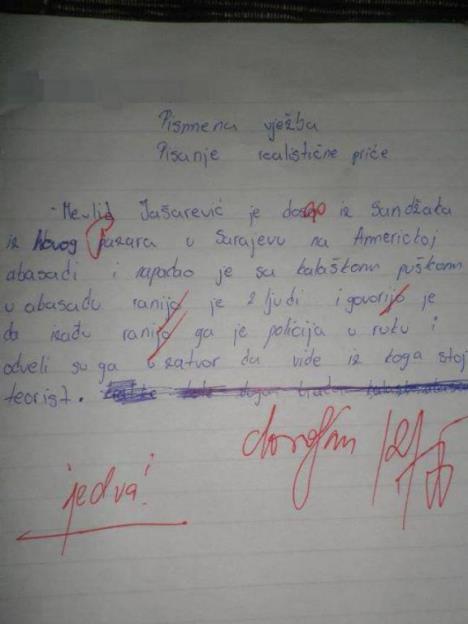 Pismena vježba
Pisanje realistične priče
- Mevlid Jašarević je došao iz Sandžaka
iz Novog pazara u Sarajevu na Američkoj
abasadi i napadao je sa kalaškom puškom
u abasadu ranijo je 2 ljudi i govorijo je
da izađu ranijo ga je policija u ruku i
odveli su ga u zatvor da vide iz koga stoj
teorist.
dovoljan /2/
jedva!